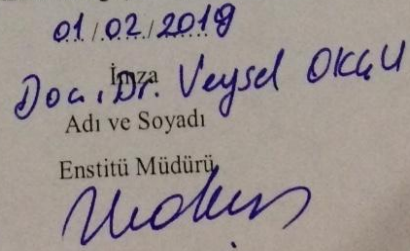 01/02/2019
İmza
Doç. Dr. Veysel OKÇU
Adı ve Soyadı
Enstitü Müdürü